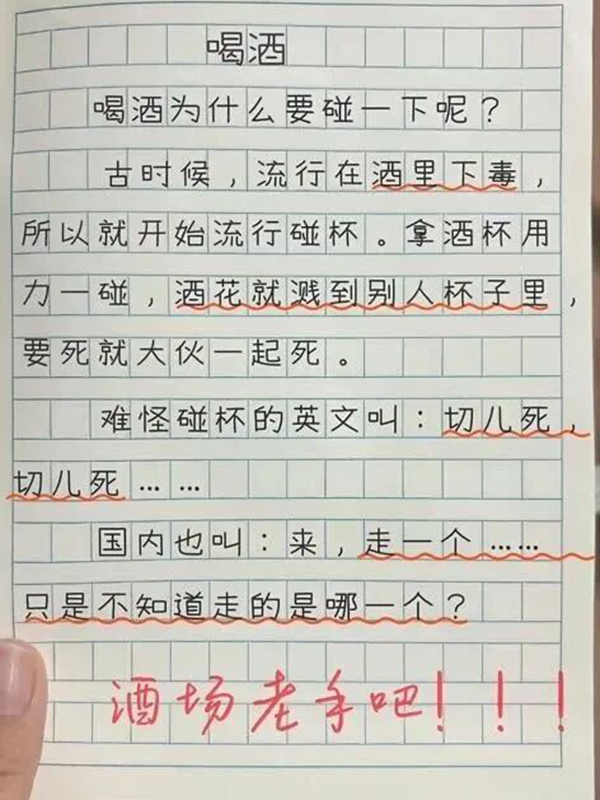 喝酒
喝酒为什么要碰一下呢？
古时候，流行在酒里下毒，
所以就开始流行碰杯。拿酒杯用
力一碰，酒花就溅到别人杯子里，
要死就大伙一起死。
难怪碰杯的英文叫：切儿死，
切儿死……
国内也叫：来，走一个……
只是不知道走的是哪一个？
酒场老手吧！！！